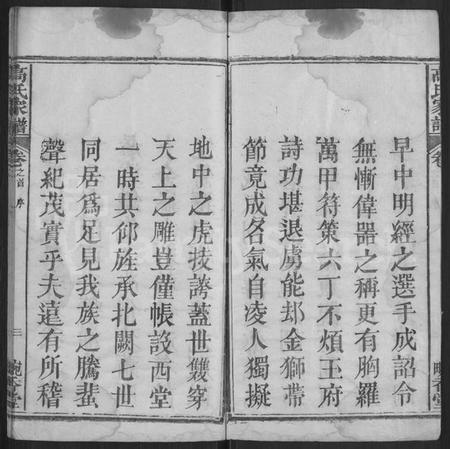 早中明經之選手成詔令
無慚偉器之稱更有胸羅
萬甲符策六丁不煩玉府
詩功堪退虜能却金獅帶
節竟成名氣自凌人獨擬
高氏家譜
卷之首 序
三
地中之虎技誇蓋世雙穿
天上之雕豈僅帳設西堂
一時共仰旌承北闕七世
同居為足見我族之騰蜚
聲紀茂實乎夫遠有所稽